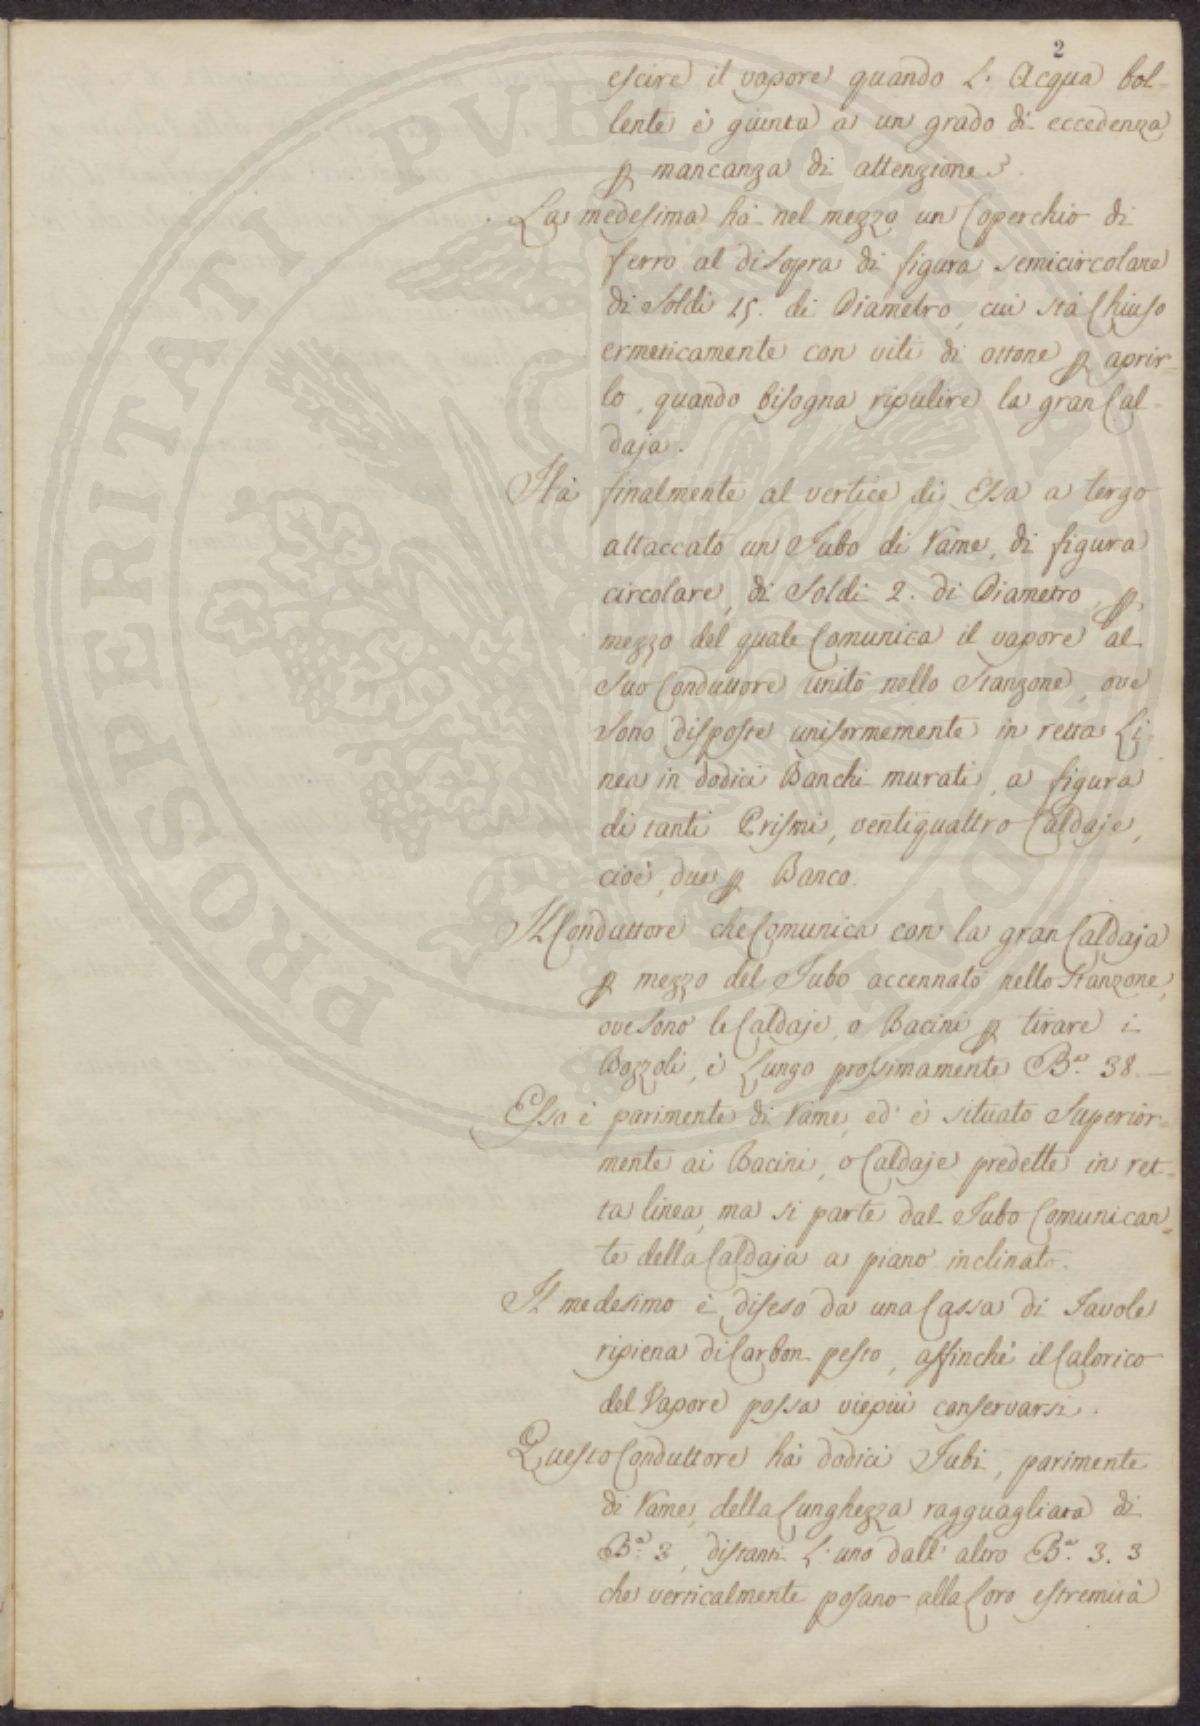 2
escire il vapore quando l'Acqua bol-
lente è giunta a un grado di eccedenza
p mancanza di attenzione.
La medesima ha nel mezzo un Coperchio di
ferro al disopra di figura semicircolare
di Soldi 15. di Diametro, cui stà Chiuso
ermeticamente con viti di ottone p aprir-
lo, quando bisogna ripulire la gran Cal-
daja.
Hà finalmente al vertice di Essa a tergo
attaccato un Tubo di Rame, di figura
circolare, di Soldi 2. di Diametro, p
mezzo del quale Comunica il vapore al
Suo Conduttore unito nello Stanzone, ove
Sono disposte uniformemente in retta Li-
nea in dodici Banchi murati, a figura
di tanti Prismi, ventiquattro Caldaje,
cioè, due p Banco.
Il Conduttore che Comunica con la gran Caldaja
p mezzo del Tubo accennato nello Stanzone,
ove Sono le Caldaje, o Bacini p tirare i
Bozzoli, è Lungo prossimamente Ba. 38.—
Esso è parimente di Rame, ed è situato Superior-
mente ai Bacini, o Caldaje predette in ret-
ta linea, ma si parte dal Tubo Comunican-
te della Caldaja a piano inclinato.
Il medesimo è difeso da una Cassa di Tavole
ripiena di Carbon pesto, affinchè il Calorico
del Vapore possa viepiù conservarsi.
Questo Conduttore ha dodici Tubi, parimente
di Rame, della Lunghezza ragguagliata di
Ba. 3, distanti l'uno dall'altro Ba. 3. 3
che verticalmente posano alla Loro estremità
PROSPERITATI PUBLICAE AUGENDAE